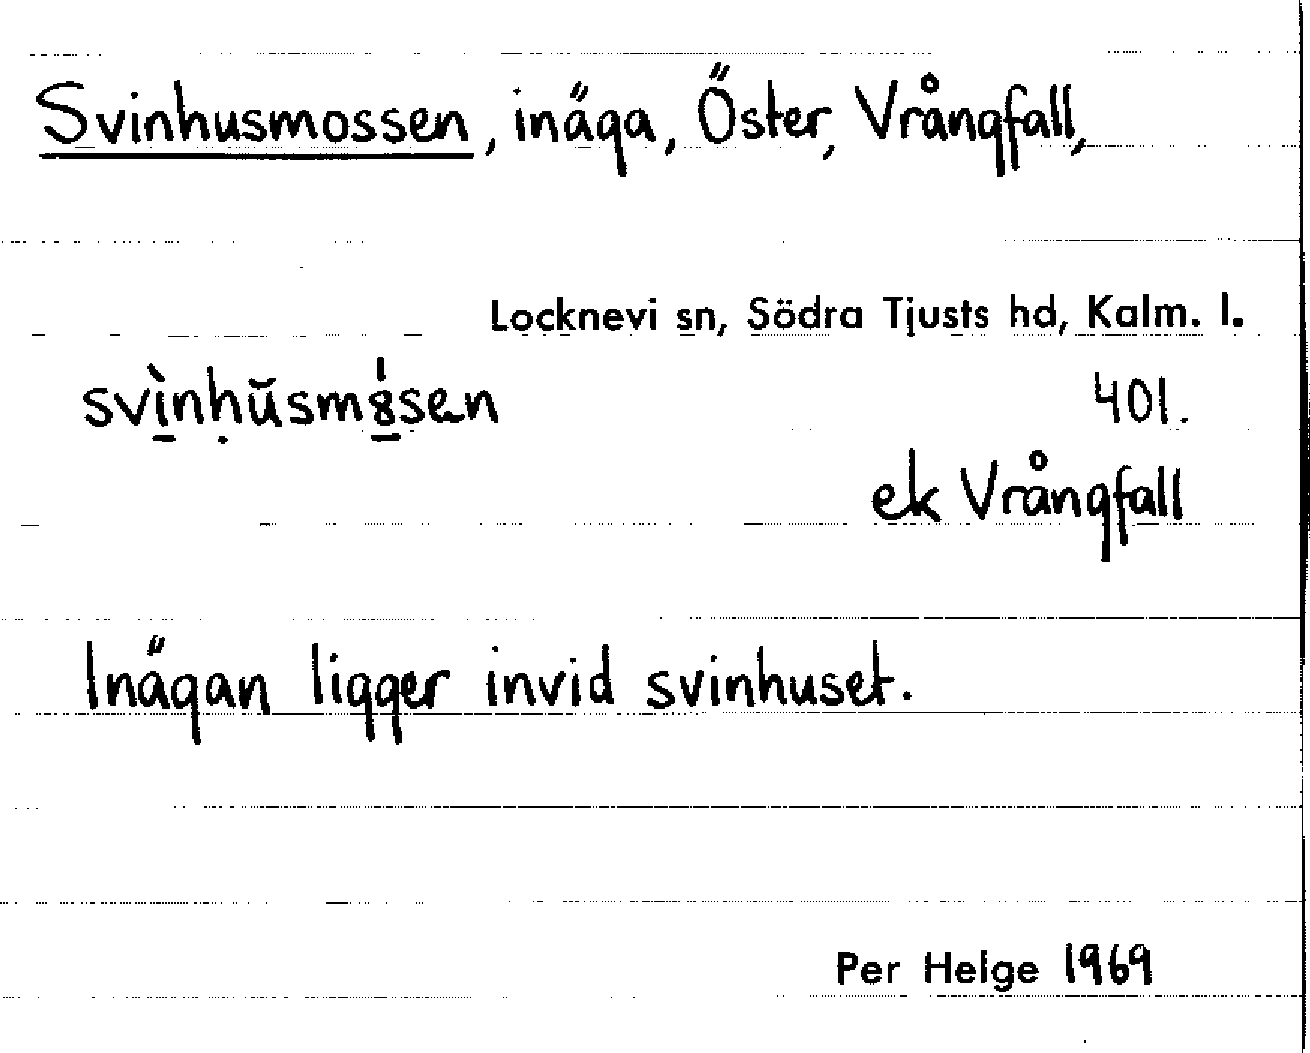 Svinhusmossen, inäga, Öster, Vrångfall,
Locknevi sn, Södra Tjusts hd, Kalm. l.
svı̱̀nḥŭsm8̱́sen
401.
ek Vrångfall
Inägan ligger invid svinhuset.
Per Helge 1969